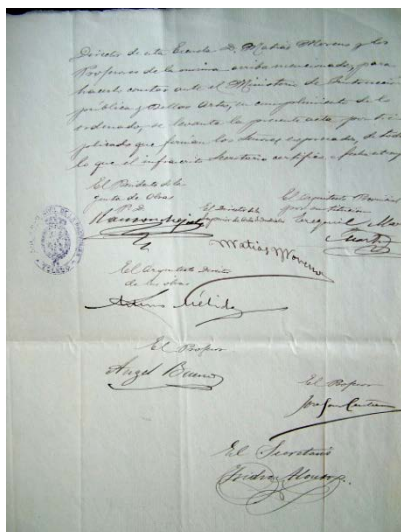 Director de esta Escuela D. Matías Moreno y los
Profesores de la misma arriba mencionados, para
hacerlo constar ante el Ministerio de Instrucción
pública y Bellas Artes, en cumplimiento de lo
ordenado, se levanta la presente acta por tri-
plicado que firman los Señores expresados, de todo
lo que el infrascrito Secretario certifica
El Presidente de la
Junta de Obras
P. D.
El Director de la
El Arquitecto
por sustitución
Ezequiel
Matías Moreno
El Arquitecto Director
de las obras
Arturo Mélida
El Profesor
Angel Bueno
El Profesor
José
El Secretario
Isidro Alonso